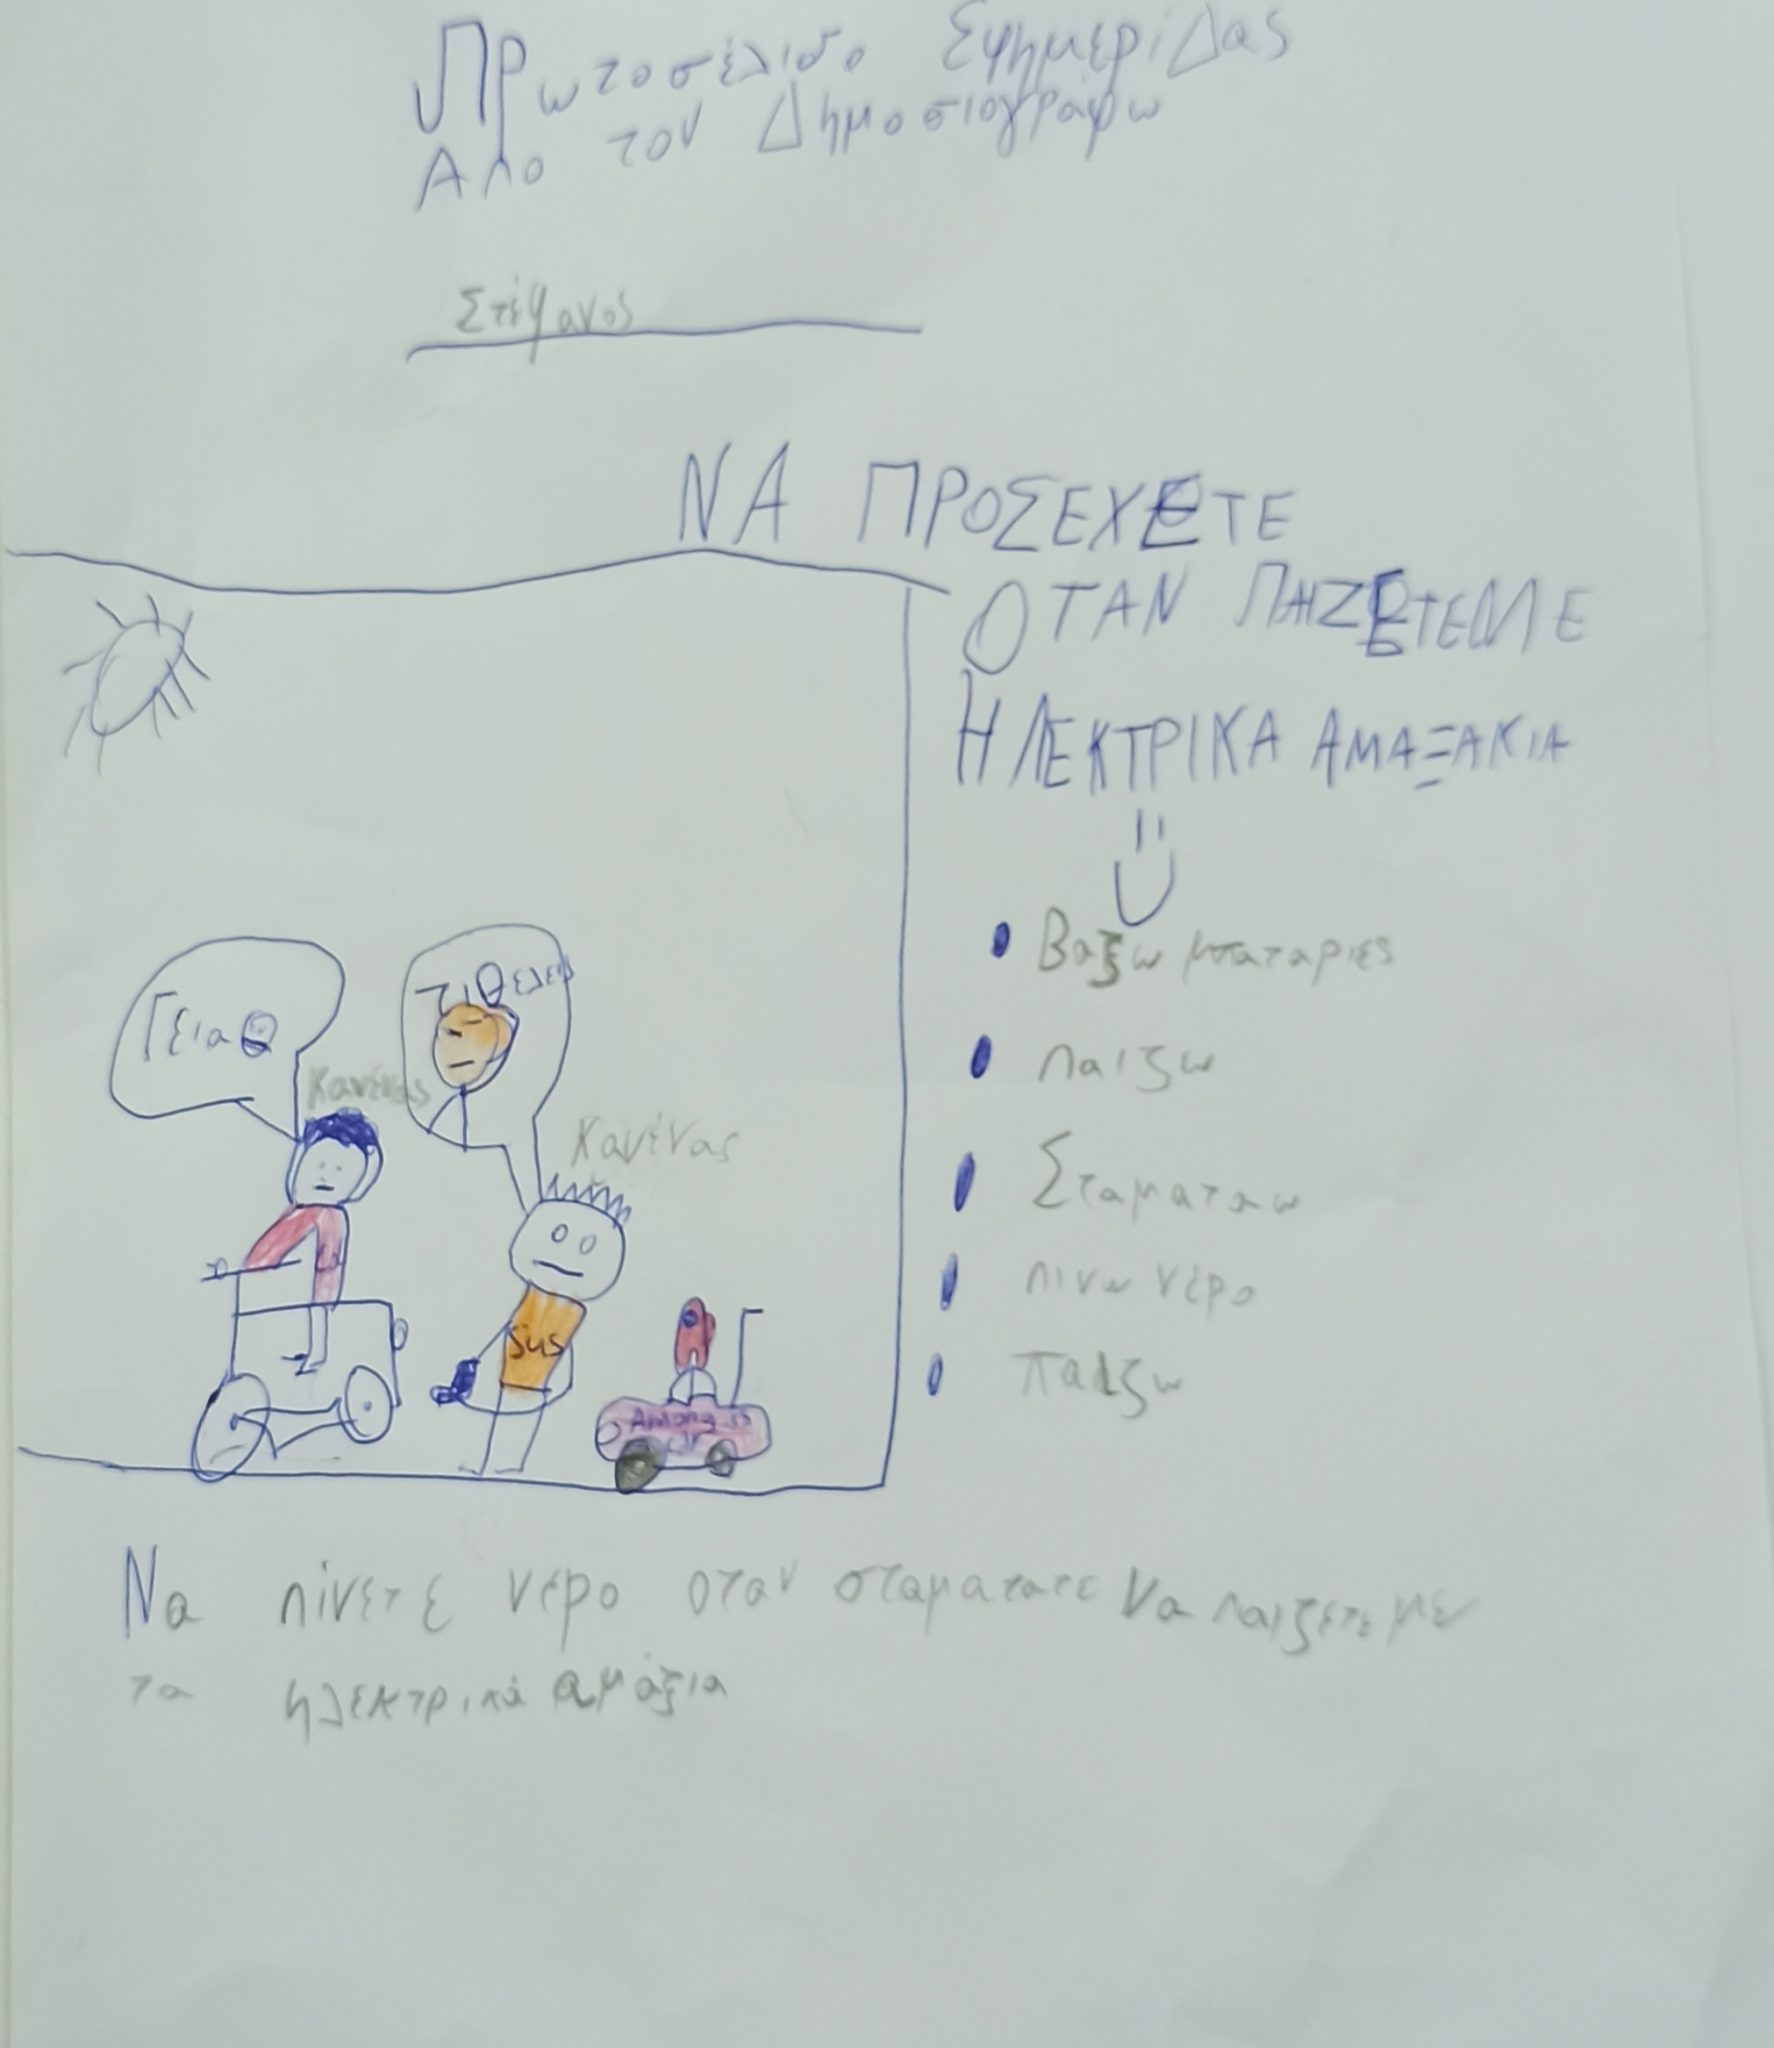 Πρωτοσέλιδο ΕφημερίΔας
Απο τον Δημοσιογράφω
Στέφανος
ΝΑ ΠΡΟΣΕΧΕΤΕ
ΟΤΑΝ ΠΗΖΕΤΕ ΜΕ
ΗΛΕΚΤΡΙΚΑ ΑΜΑΞΑΚΙΑ
Βαζω μπαταριες
παιζω
Σταματαω
πινω νέρο
παιζω
Γεια
Τι Θελεις
Κανένας
Κανένας
sus
Among us
Να πίνετε νέρο οταν σταματατε να παιζετε με
τα ηλεκτρικά αμάξια